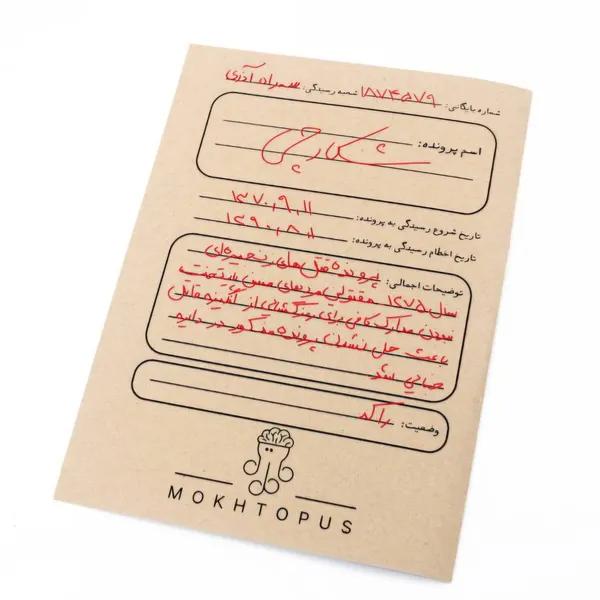 شماره بایگانی: ۱۸۷۴۵۷۹ شعبه رسیدگی: سهراه آذری
اسم پرونده:
شکارچی
تاریخ شروع رسیدگی به پرونده: ۱۳۷۰,۹,۱۱
تاریخ اخطام رسیدگی به پرونده: ۱۳۹۰,۸,۱
توضیحات اجمالی: پرونده قتل‌های زنجیره‌ای
سال ۱۲۷۵ مقتولین مردهای مسن پایتخت
نبودن مدارک کافی برای رمزگشایی از انگیزه قاتل
باعث حل نشدن پرونده مذکور در دایره
جنایی شد
وضعیت: راکد
MOKHTOPUS